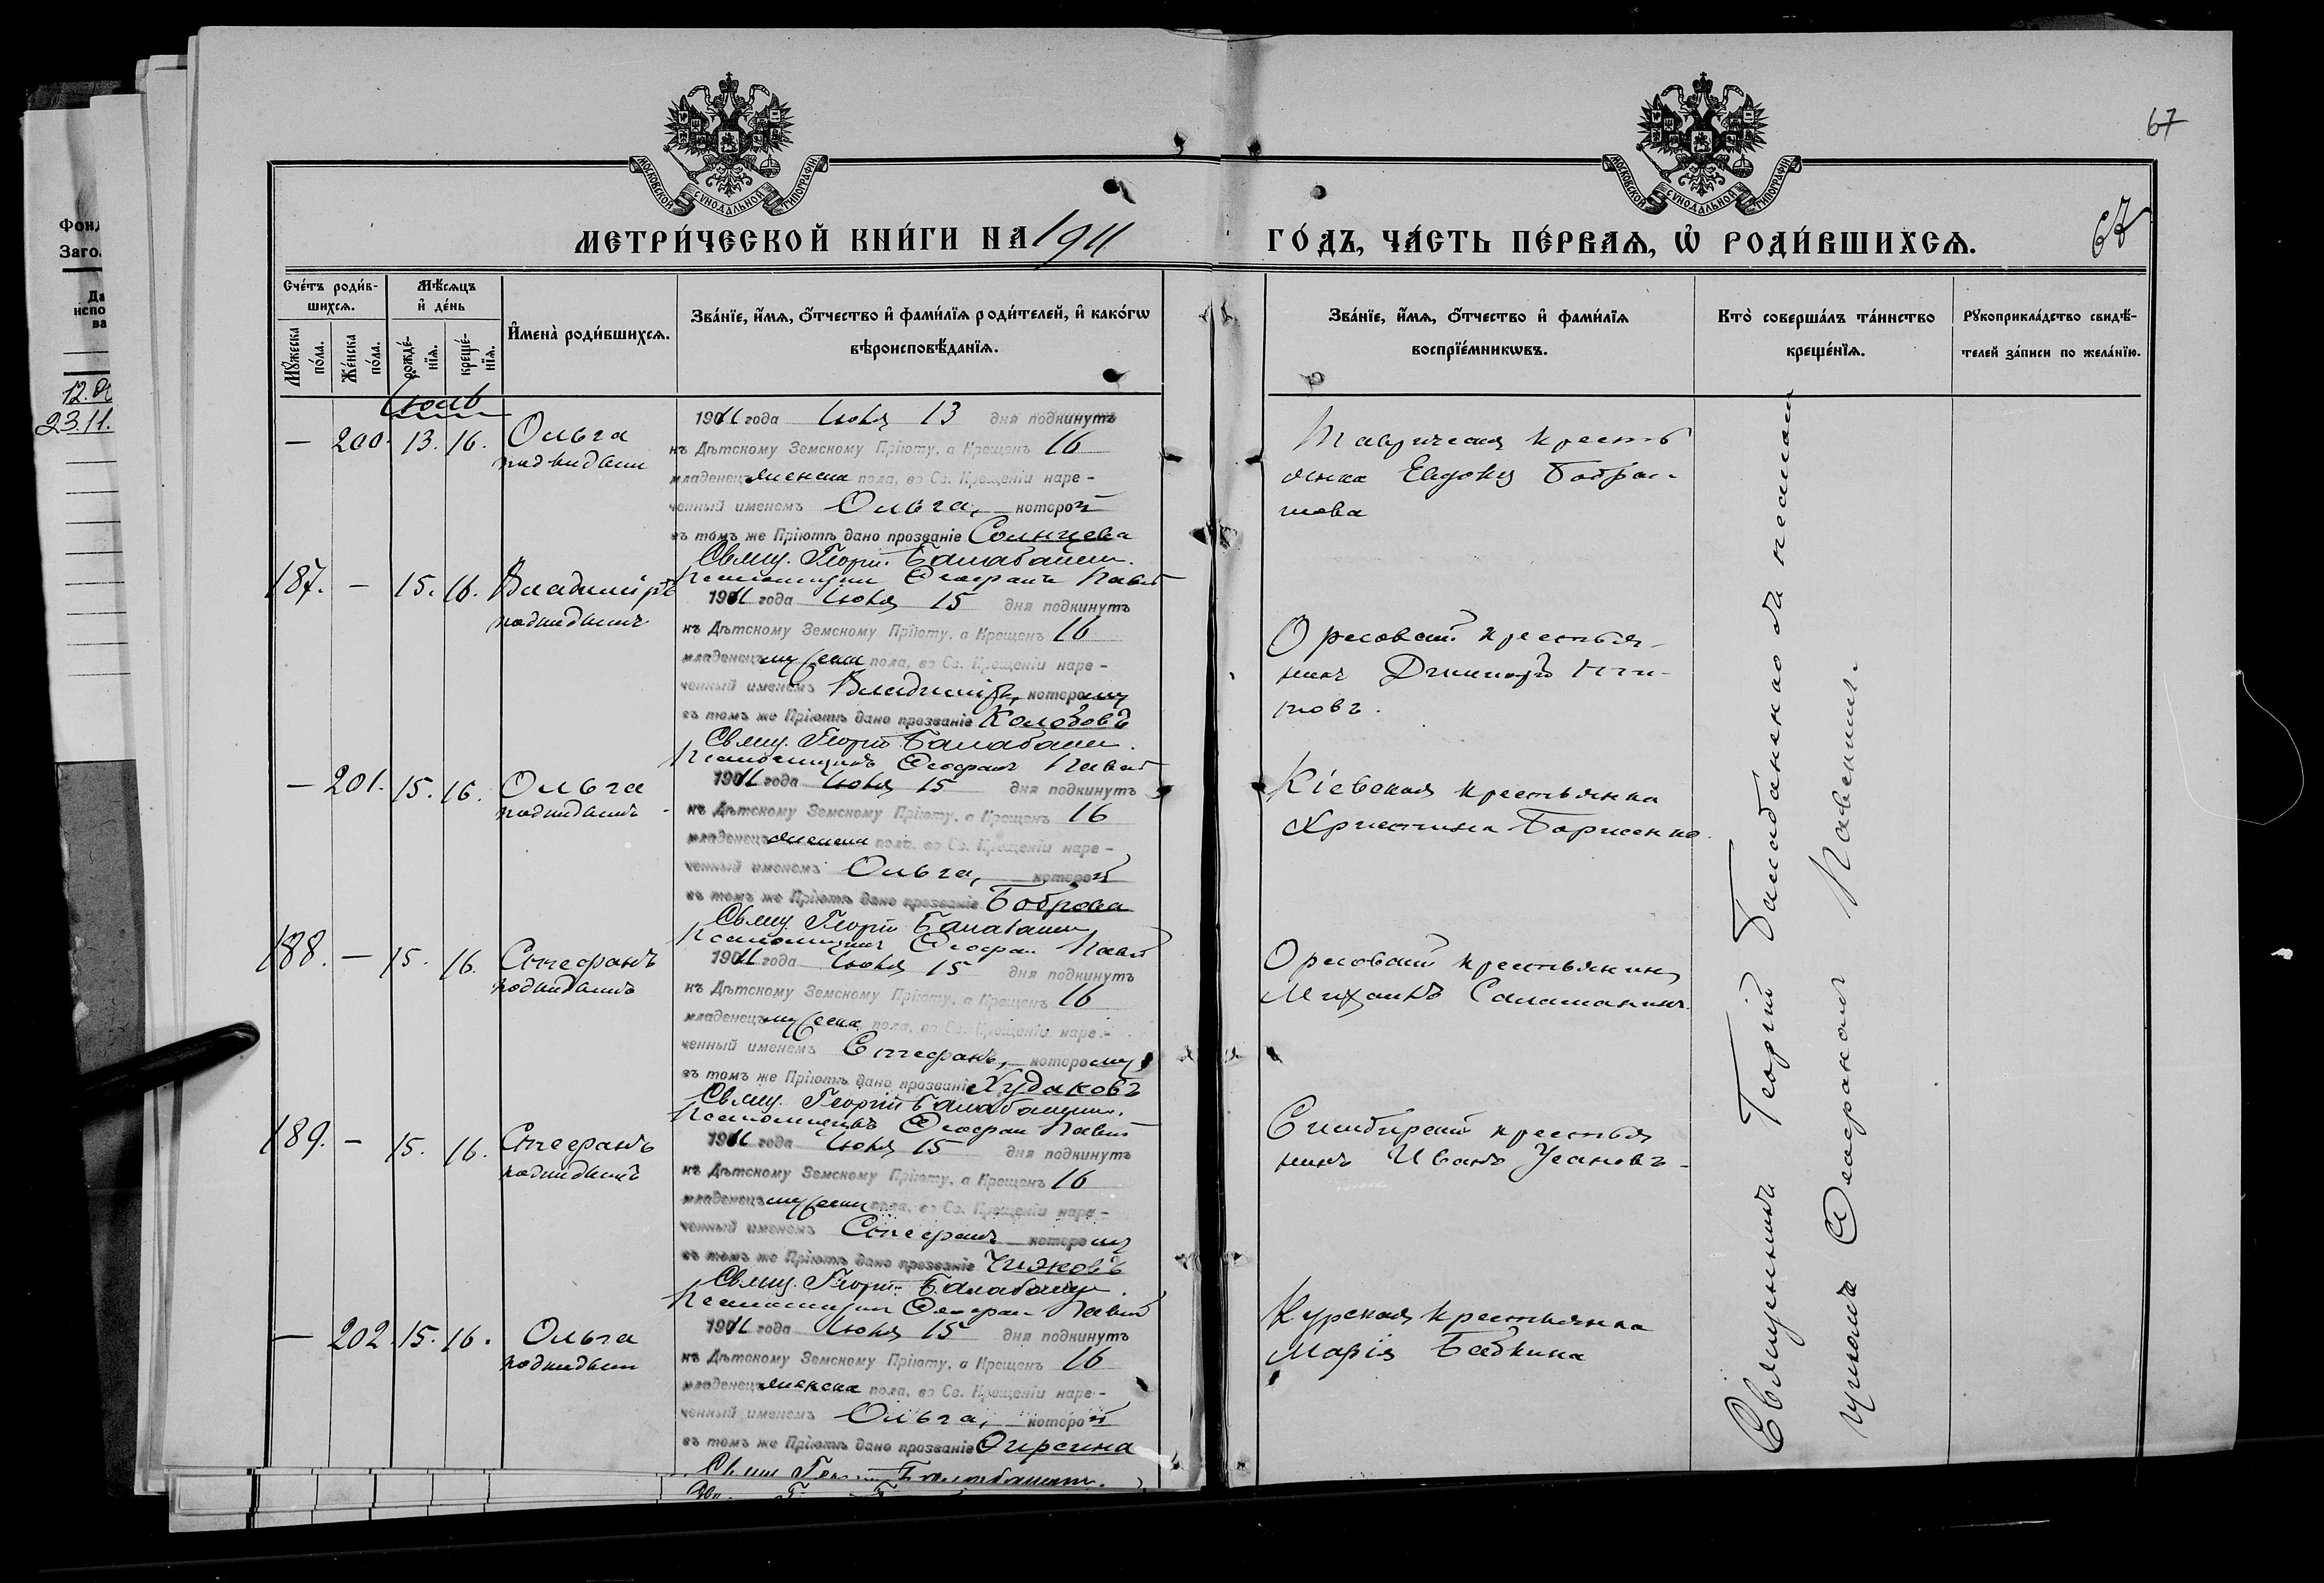 67
МОСКОВСКОЙ СѴНОДАЛЬНОЙ ТИПОГРАФІИ
МОСКОВСКОЙ СѴНОДАЛЬНОЙ ТИПОГРАФІИ
МЕТРИ́ЧЕСКОЙ КНИ́ГИ НА 1911
ГО́ДЪ, ЧА́СТЬ ПЕ́РВАѦ, Ѡ҆ РОДИ́ВШИХСѦ.
67
Сче́тъ роди́в-
шихсѧ.
Мꙋ́жеска по́ла.
Же́нска по́ла.
Мѣ́сѧцъ
и҆ де́нь
рожде́-
нїѧ.
креще́-
нїѧ.
И҆мена̀ роди́вшихсѧ.
Зва́нїе, и҆́мѧ, ѻ҆́тчество и҆ фами́лїѧ роди́телей, и҆ како́гѡ
вѣроисповѣ́данїѧ.
Зва́нїе, и҆́мѧ, ѻ҆́тчество и҆ фами́лїѧ
воспрїе́мникѡвъ.
Кто̀ соверша́лъ та́инство
креще́нїѧ.
Рꙋкоприкла́дство свидѣ́-
телей за́писи по жела́нїю.
Фон
Заго
Да
испо
ва
12.
23.11.
Іюль
— 200. 13. 16. Ольга
1911 года Іюля 13 дня подкинутъ
къ Дѣтскому Земскому Пріюту, а Крещенъ 16
младенецъ женска пола, во Св. Крещеніи наре-
ченный именемъ Ольга, которой
въ томъ же Пріютѣ дано прозваніе Солнцева
Свящ. Георгій Балабаненко
Таврическая кресть
янка Евдокія
187. — 15. 16. Владиміръ
подкидышъ
1911 года Іюля 15 дня подкинутъ
къ Дѣтскому Земскому Пріюту, а Крещенъ 16
младенецъ мужеска пола, во Св. Крещеніи наре-
ченный именемъ Владиміръ, которому
въ томъ же Пріютѣ дано прозваніе
Свящ. Георгій Балабаненко
Орловскій крестья-
нинъ Димитрій
— 201. 15. 16. Ольга
подкидышъ
1911 года Іюля 15 дня подкинутъ
къ Дѣтскому Земскому Пріюту, а Крещенъ 16
младенецъ женска пола, во Св. Крещеніи наре-
ченный именемъ Ольга, которой
въ томъ же Пріютѣ дано прозваніе Боброва
Свящ. Георгій Балабаненко
Кіевская крестьянка
Христина Борисенко
188. — 15. 16. Стефанъ
подкидышъ
1911 года Іюля 15 дня подкинутъ
къ Дѣтскому Земскому Пріюту, а Крещенъ 16
младенецъ мужеска пола, во Св. Крещеніи наре-
ченный именемъ Стефанъ, которому
въ томъ же Пріютѣ дано прозваніе Худаковъ
Свящ. Георгій Балабаненко
Орловскій крестьянинъ
Михаилъ Саламахинъ
189. — 15. 16. Стефанъ
подкидышъ
1911 года Іюля 15 дня подкинутъ
къ Дѣтскому Земскому Пріюту, а Крещенъ 16
младенецъ мужеска пола, во Св. Крещеніи наре-
ченный именемъ Стефанъ которому
въ томъ же Пріютѣ дано прозваніе Чижковъ
Свящ. Георгій Балабаненко
Симбирскій крестья
нинъ Иванъ Усановъ
— 202. 15. 16. Ольга
1911 года Іюля 15 дня подкинутъ
къ Дѣтскому Земскому Пріюту, а Крещенъ 16
младенецъ женска пола, во Св. Крещеніи наре-
ченный именемъ Ольга, которой
въ томъ же Пріютѣ дано прозваніе
Курская крестьянка
Марія Бабкина
Священникъ Георгій Балабаненко съ псалом
щикомъ Ѳеофаномъ